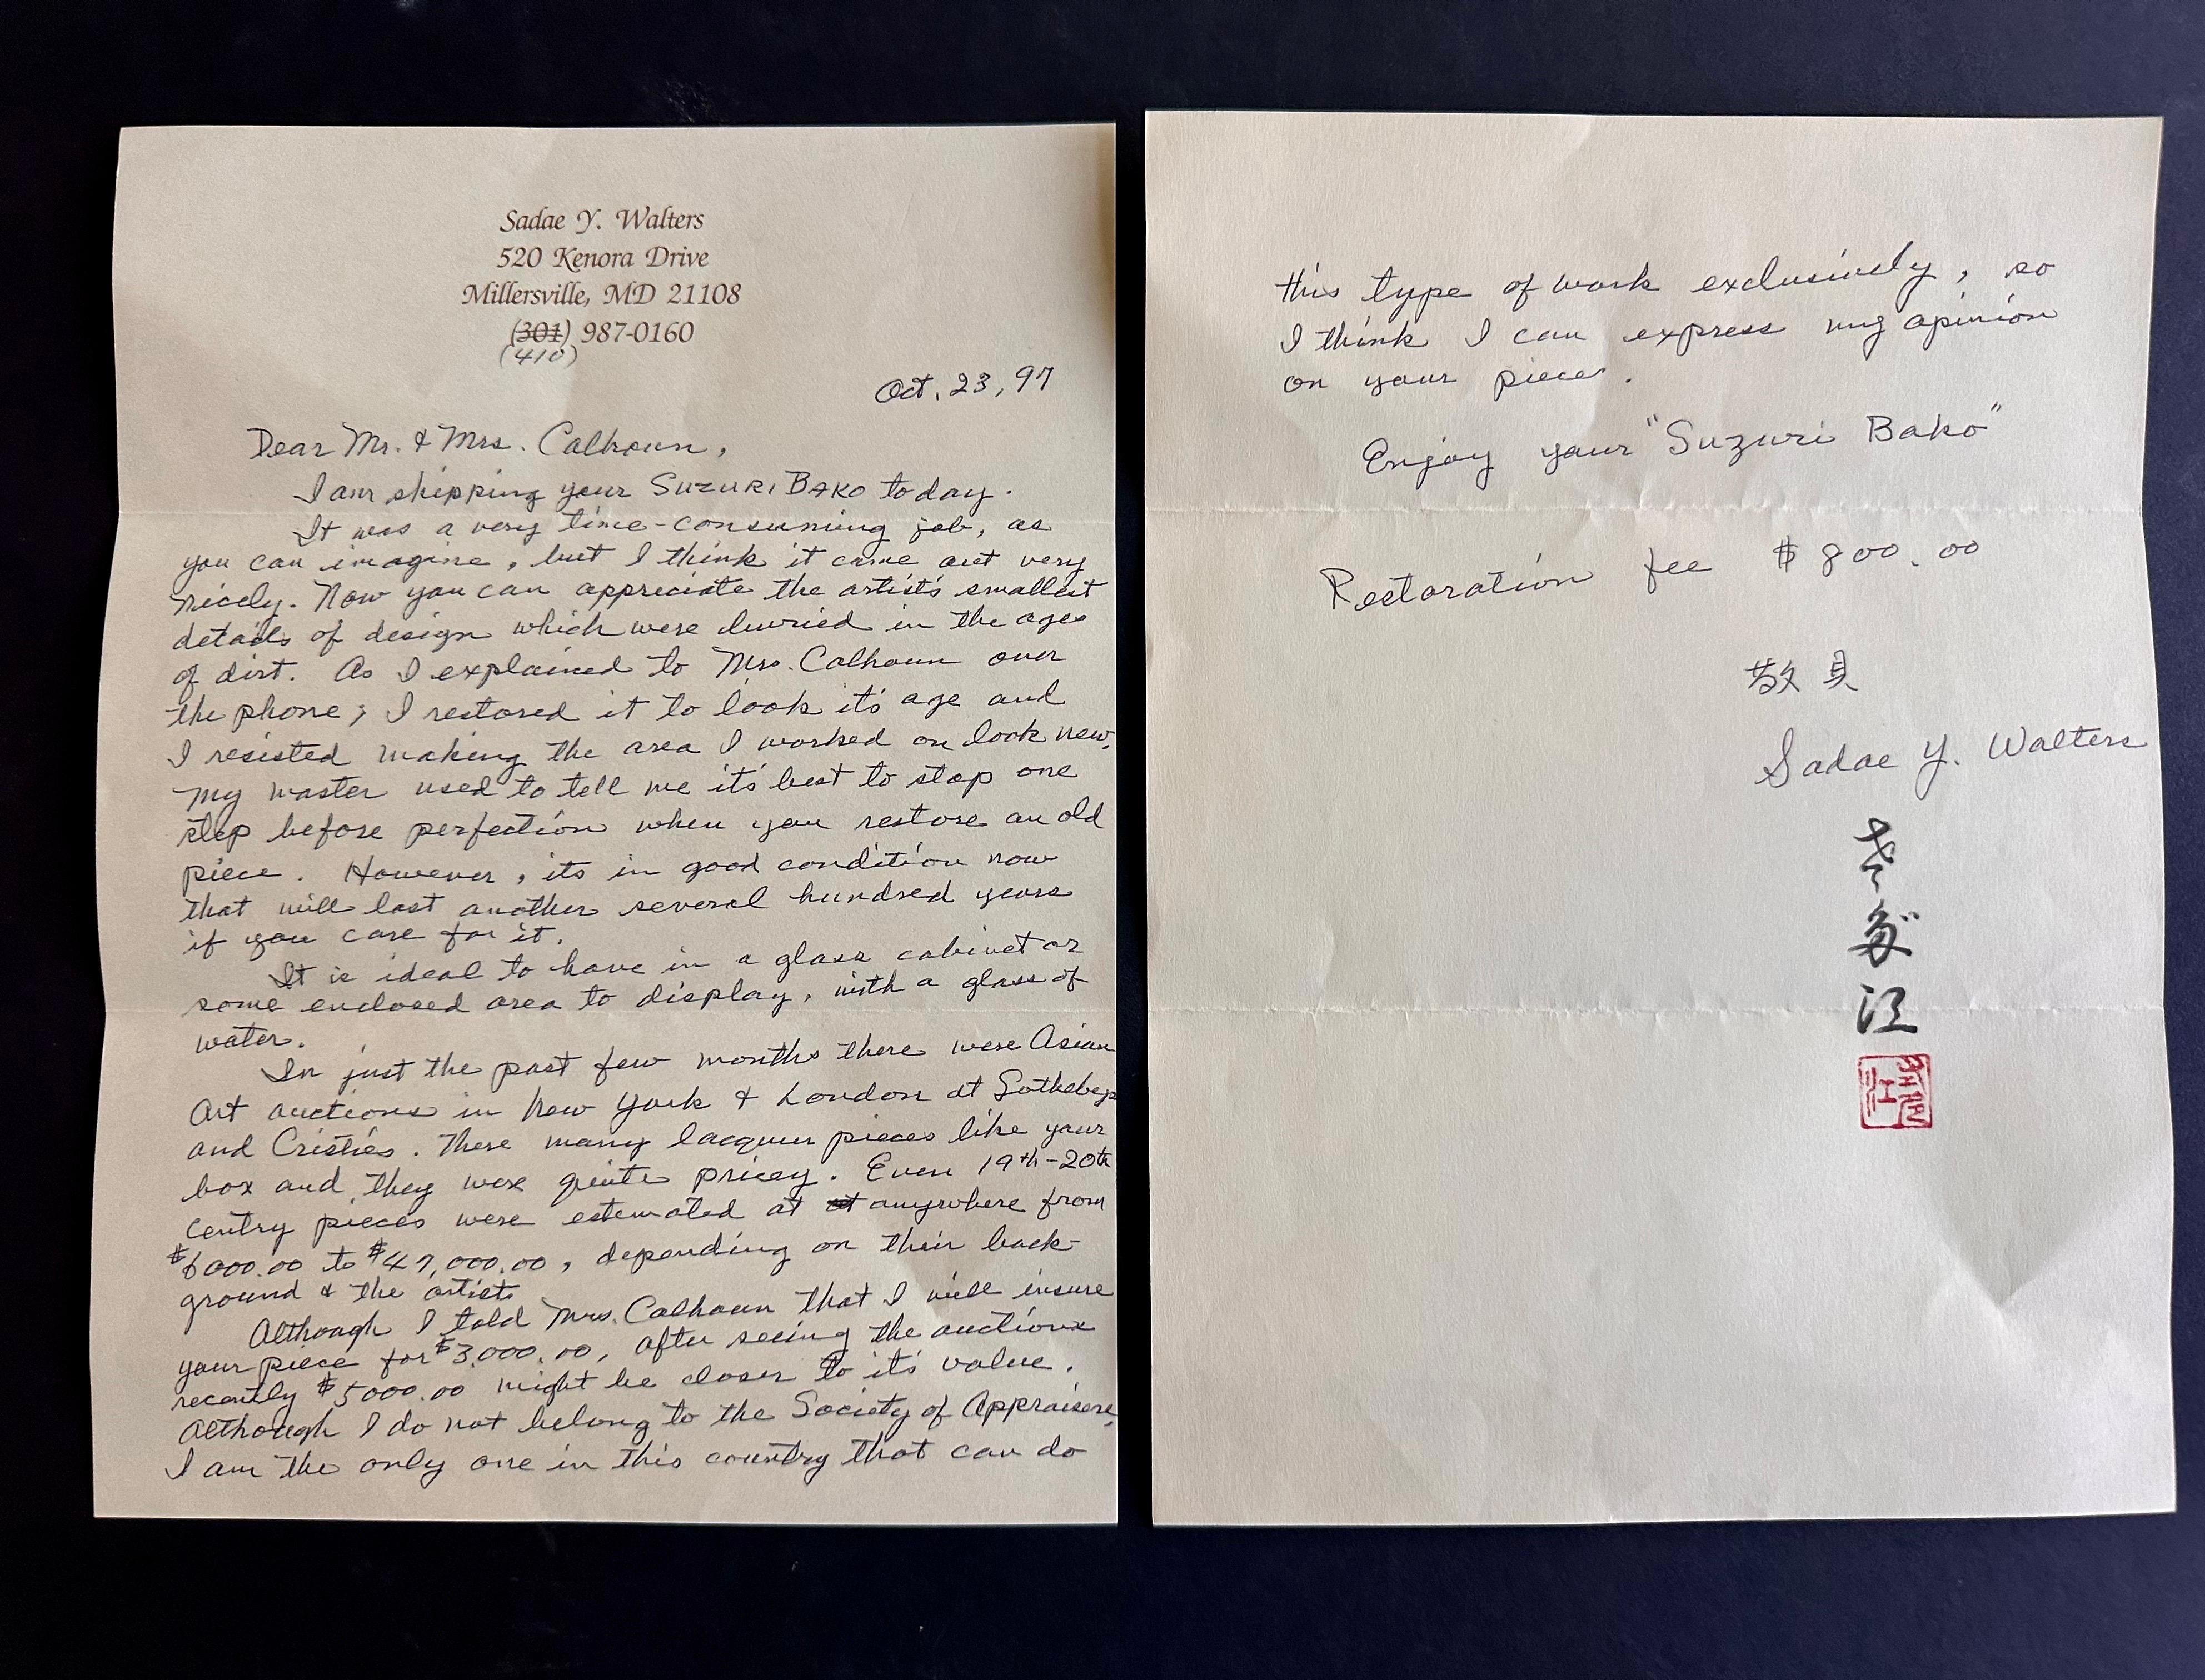 Sadae Y. Walters
520 Kenora Drive
Millersville, MD 21108
(301) 987-0160
(410)
Oct. 23, 97
Dear Mr. & Mrs. Calhoun,
I am shipping your SUZURI BAKO today.
It was a very time-consuming job, as
you can imagine, but I think it came out very
nicely. Now you can appreciate the artist's smallest
details of design which were burried in the ages
of dirt. As I explained to Mrs. Calhoun over
the phone; I restored it to look it's age and
I resisted making the area I worked on look new.
My master used to tell me it's best to stop one
step before perfection when you restore an old
piece. However, its in good condition now
that will last another several hundred years
if you care for it.
It is ideal to have in a glass cabinet or
some enclosed area to display, with a glass of
water.
In just the past few months there were Asian
Art auctions in New York & London at Sothebys
and Cristies. There many lacquer pieces like your
box and they were quite pricey. Even 19th-20th
centry pieces were estemated at at anywhere from
$6000.00 to $47,000.00, depending on their back-
ground & the artists
Although I told Mrs. Calhoun that I will insure
your piece for $3,000.00, after seeing the auctions
recently $5000.00 might be closer to it's value.
Although I do not belong to the Society of Appraisers,
I am the only one in this country that can do
this type of work exclusively, so
I think I can express my opinion
on your pieces.
Enjoy your "Suzuri Bako"
Restoration fee $800.00
敬具
Sadae Y. Walters
江